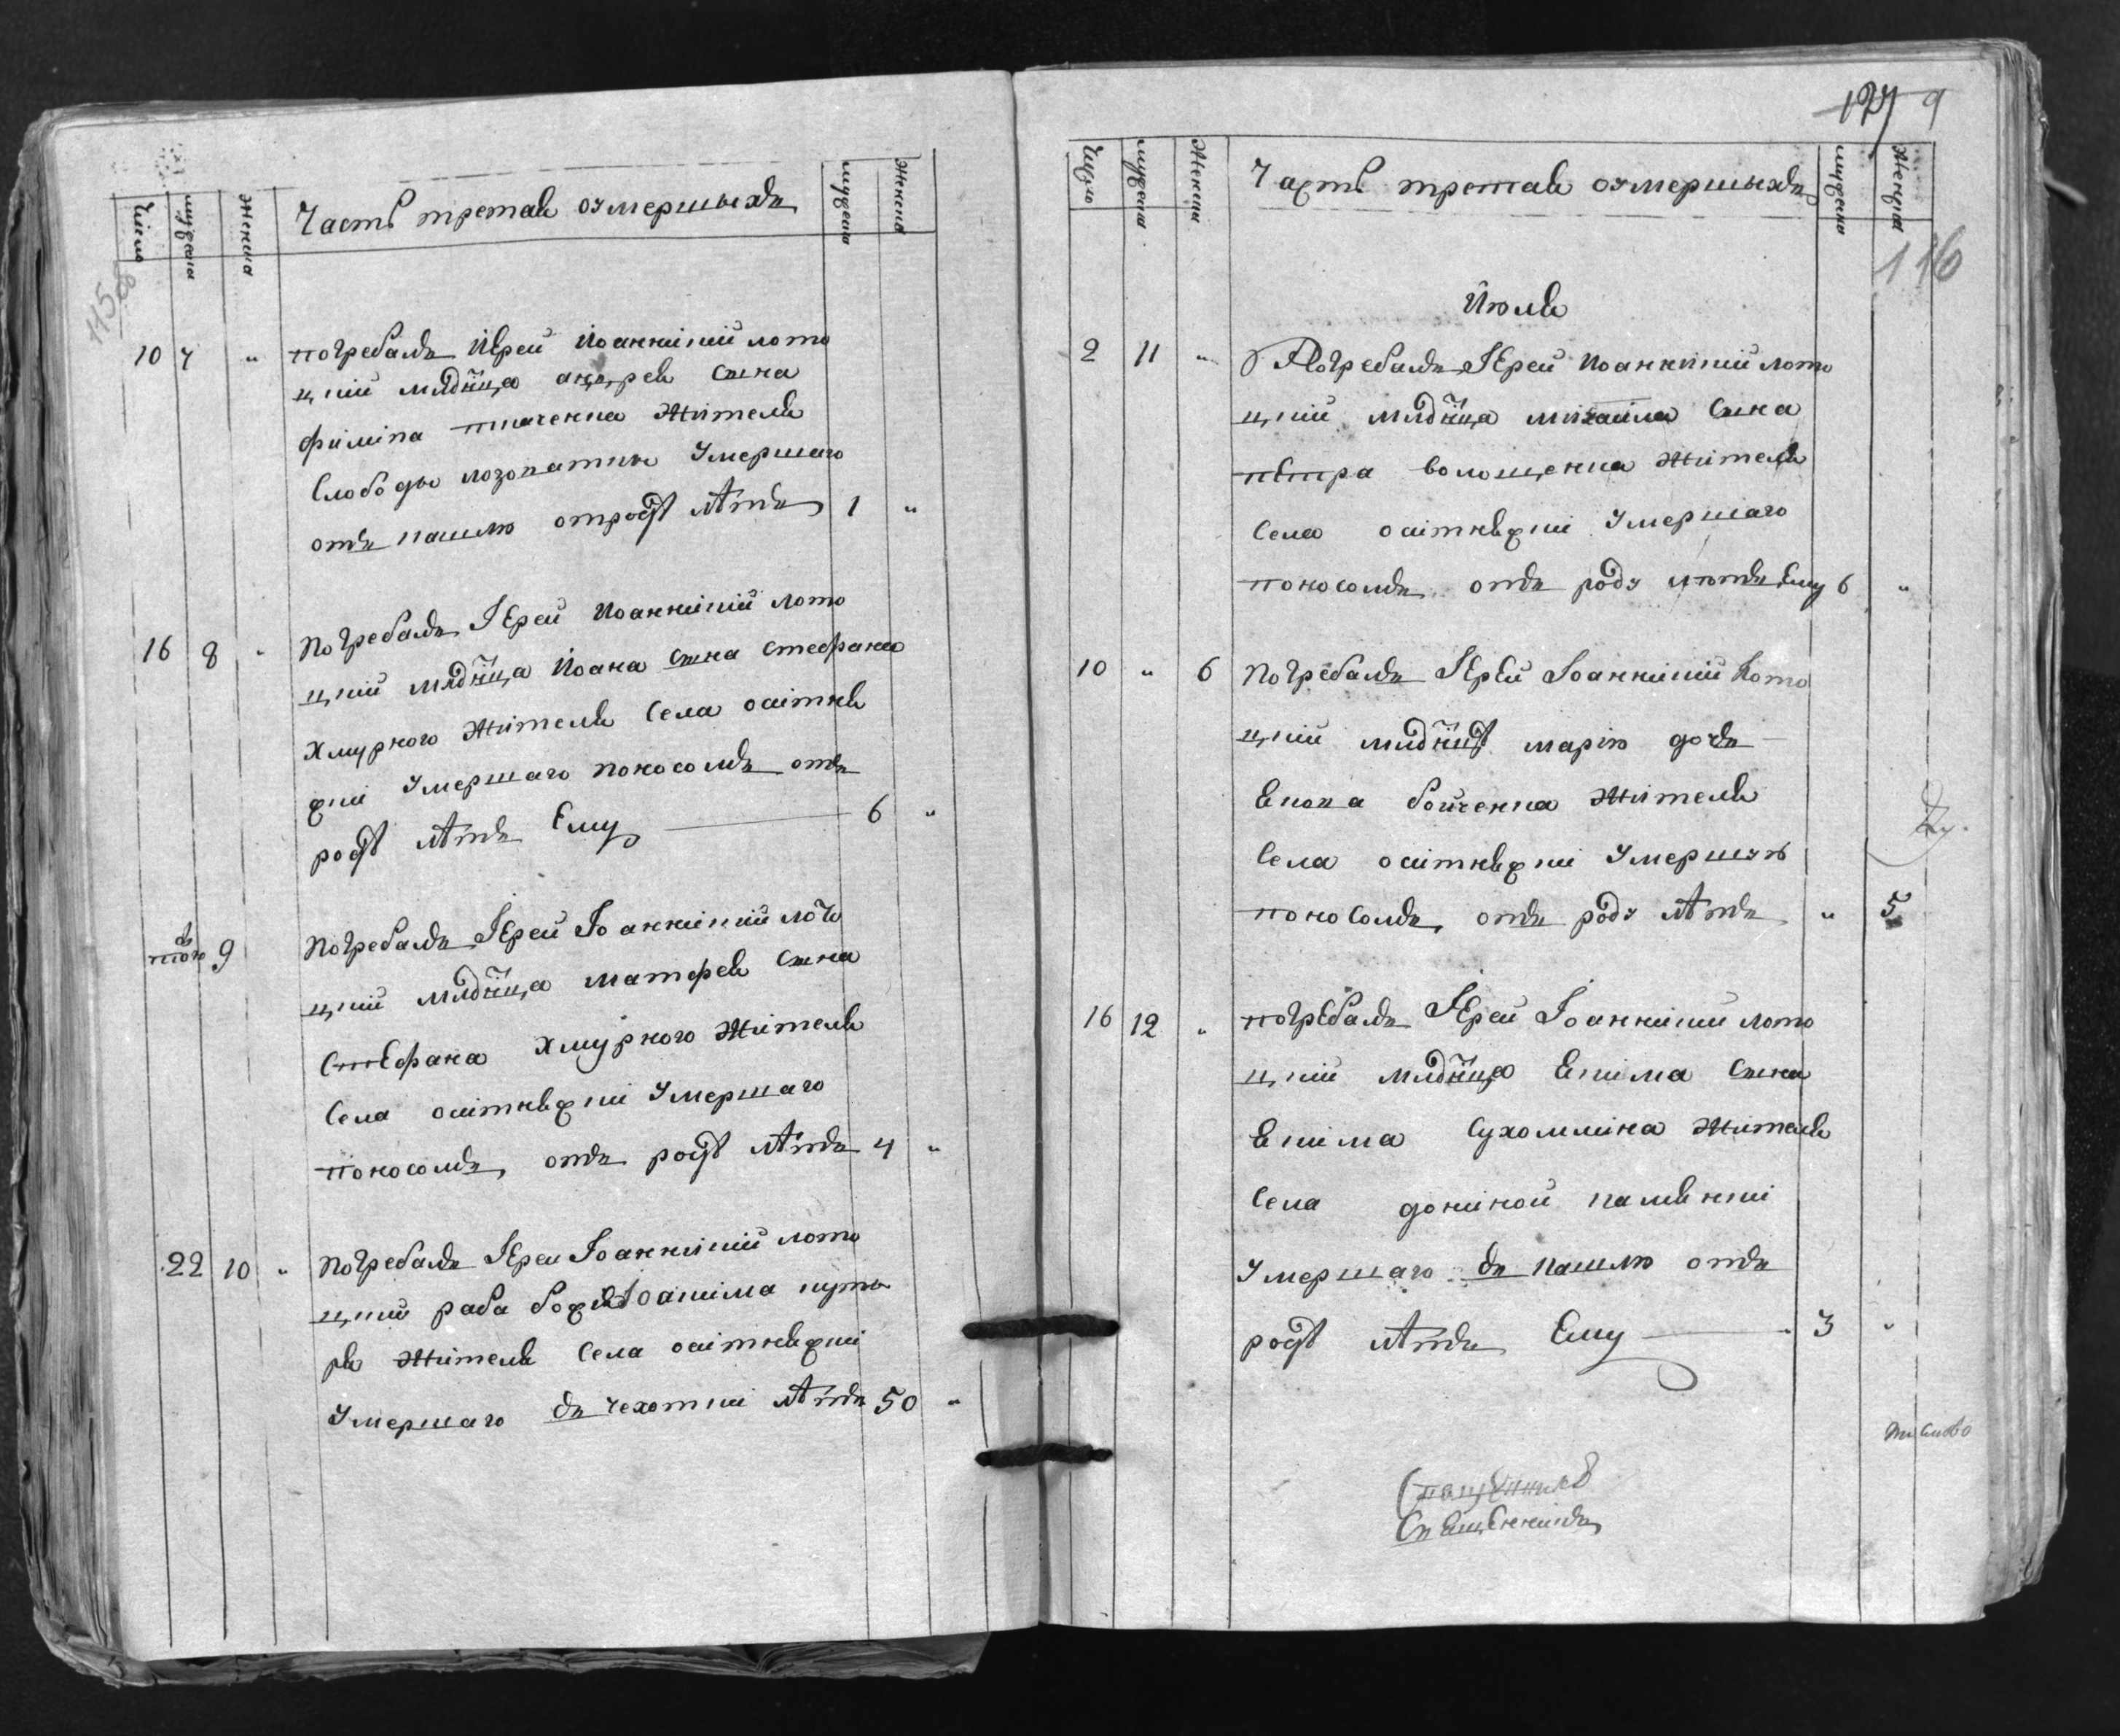 Число
мужеска
женска
Часть третая оумершыхъ
мужеска
женска
115об
10 7 " погребалъ Иерей Иоанникий лото
цкий млднца андрея сына
филипа ткаченка жителя
слободы лозоватки умершаго
отъ кашлю отроду лѣтъ 1 "
16 8 " Погребалъ Иерей Иоанникий лото
цкий млднца Иоана сына стефана
Хмурного жителя села оситня
жки умершаго покосомъ отъ
роду лѣтъ Ему 6 "
того 9 Погребалъ Иерей Иоанникий лото
цкий млднца матфея сына
Стефана Хмурного жителя
села оситняжки умершаго
покосомъ отъ роду лѣтъ 4 "
22 10 " Погребалъ Иерей Иоанникий лото
цкий раба божія Иоакима
ря жителя села оситняжки
умершаго въ чехотки лѣтъ 50 "
127 9
Число
мужеска
женска
Часть третая оумершыхъ
мужеска
женска
116
Июля
2 11 " Погребалъ Иерей Иоанникий лото
цкий млднца михаила сына
петра волощенка жителя
села оситняжки умершаго
покосомъ отъ роду лѣтъ Ему 6 "
10 " 6 Погребалъ Иерей Иоанникий Лото
цкий млднцу марію дочь
бойченка жителя
села оситняжки умершую
покосомъ отъ роду лѣтъ " 5
16 12 " погребалъ Иерей Иоанникий лото
цкий млднца Екима сына
Екима Сухомлина жителя
села дониной камянки
умершаго въ кашлю отъ
роду лѣтъ Ему 3 "
Священникъ